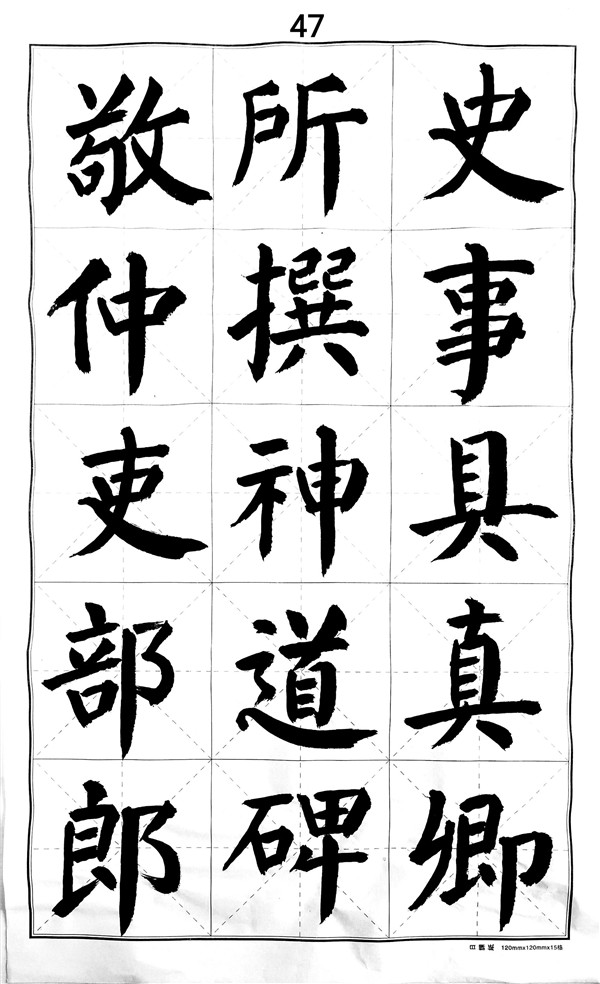 47
史事具真卿
所撰神道碑
敬仲吏部郎
120mmx120mmx15格